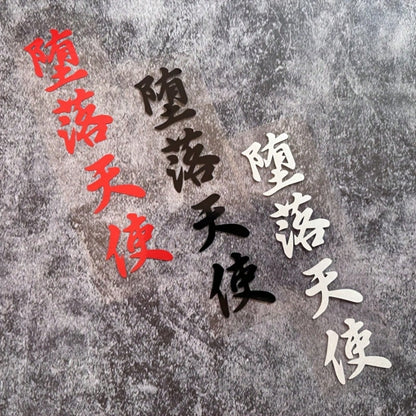 堕落天使
堕落天使
堕落天使